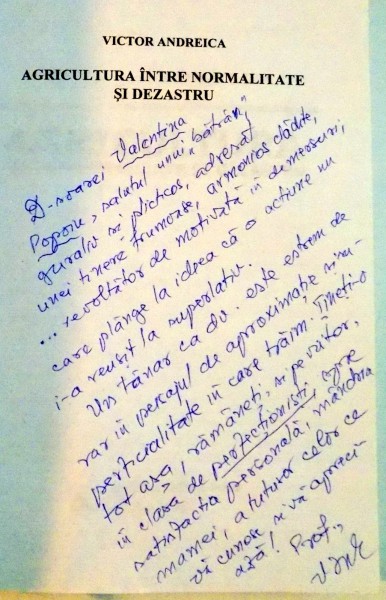 VICTOR ANDREICA
AGRICULTURA ÎNTRE NORMALITATE
ŞI DEZASTRU
D-șoarei Valentina
Popoiu, salutul unui „bătrân”,
guraliv și plicticos, adresat
unei tinere frumoase, armonios clădite,
... revoltător de motivată în demersuri,
care plânge la ideea că o acțiune nu
i-a reușit la superlativ.
Un tânăr ca dv. este extrem de
rar în peisajul de aproximație și su-
perficialitate în care trăim. Țineți-o
tot așa, rămâneți, și pe viitor,
în clasa de perfecționiști, spre
satisfacția personală, mândria
mamei, a tuturor celor ce
vă cunosc și vă apreci-
ază! Prof.,